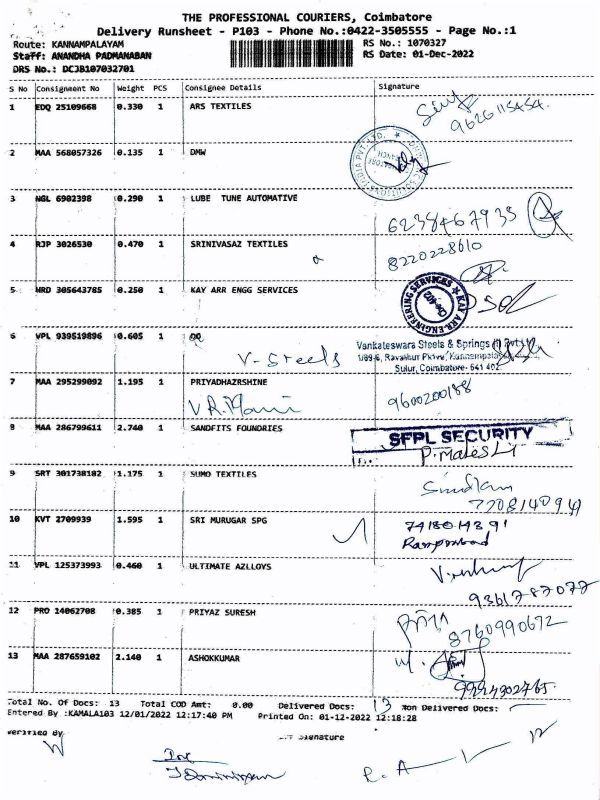 THE PROFESSIONAL COURIERS, Coimbatore
Delivery Runsheet - P103 - Phone No.:0422-3505555 - Page No.:1
Route: KANNAMPALAYAM RS No.: 1070327
Staff: ANANDHA PADMANABAN RS Date: 01-Dec-2022
DRS No.: DCJB107032701
S No Consignment No Weight PCS Consignee Details Signature
1 EDQ 25109668 0.330 1 ARS TEXTILES
9626115454.
2 MAA 568057326 0.135 1 DMW
3 NGL 6902398 0.290 1 LUBE TUNE AUTOMATIVE
6238467935
4 RJP 3026530 0.470 1 SRINIVASAZ TEXTILES 8220228610
5 NRD 305643785 0.250 1 KAY ARR ENGG SERVICES
KAY ARR ENGINEERING SERVICES
6 VPL 939519896 0.605 1 QQ
V-Steels
Vankateswara Steels & Springs (I) Pvt Ltd
Sulur, Coimbatore- 641 402.
7 MAA 295299092 1.195 1 PRIYADHAZRSHINE 9600200188
8 MAA 286799611 2.740 1 SANDFITS FOUNDRIES
SFPL SECURITY
9 SRT 301738182 1.175 1 SUMO TEXTILES
10 KVT 2709939 1.595 1 SRI MURUGAR SPG
11 VPL 125373993 0.460 1 ULTIMATE AZLLOYS
9361787077
12 PRO 14062708 0.385 1 PRIYAZ SURESH
8760990672
13 MAA 287659102 2.140 1 ASHOKKUMAR
Total No. Of Docs: 13 Total COD Amt: 0.00 Delivered Docs: 13 Non Delivered Docs:
Entered By :KAMALA103 12/01/2022 12:17:40 PM Printed On: 01-12-2022 12:18:28
Verified By Signature